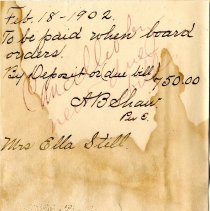 Feb. 18-1902.
To be paid when board
orders.
By Deposit or due bill 750.00
A B Shaw
Per E.
Mrs Ella Stell.